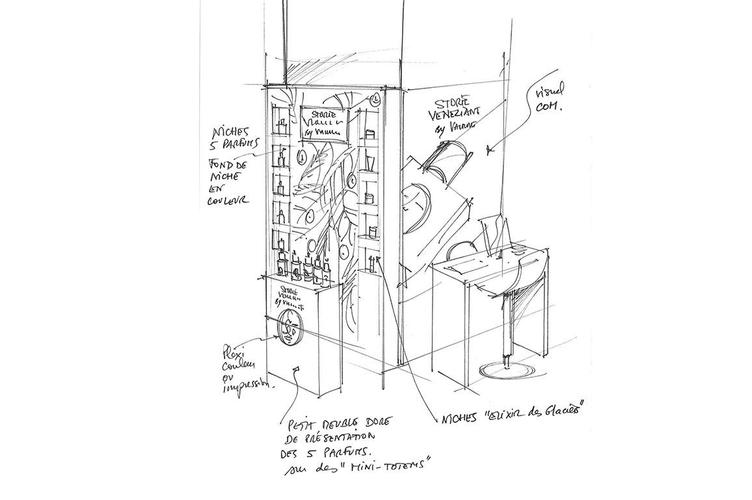 STORIE
VENEZIANE
by VALMONT
VISUEL
COM.
STORIE
by VALMONT
NICHES
5 PARFUMS
FOND DE
NICHE
EN
COULEUR
STORIE
by
Plexi
couleur
ou
impression.
PETIT MEUBLE DORÉ
DE PRÉSENTATION
DES 5 PARFUMS.
sur des "MINI-TOTEMS"
NICHES "Elixir des Glaciers"